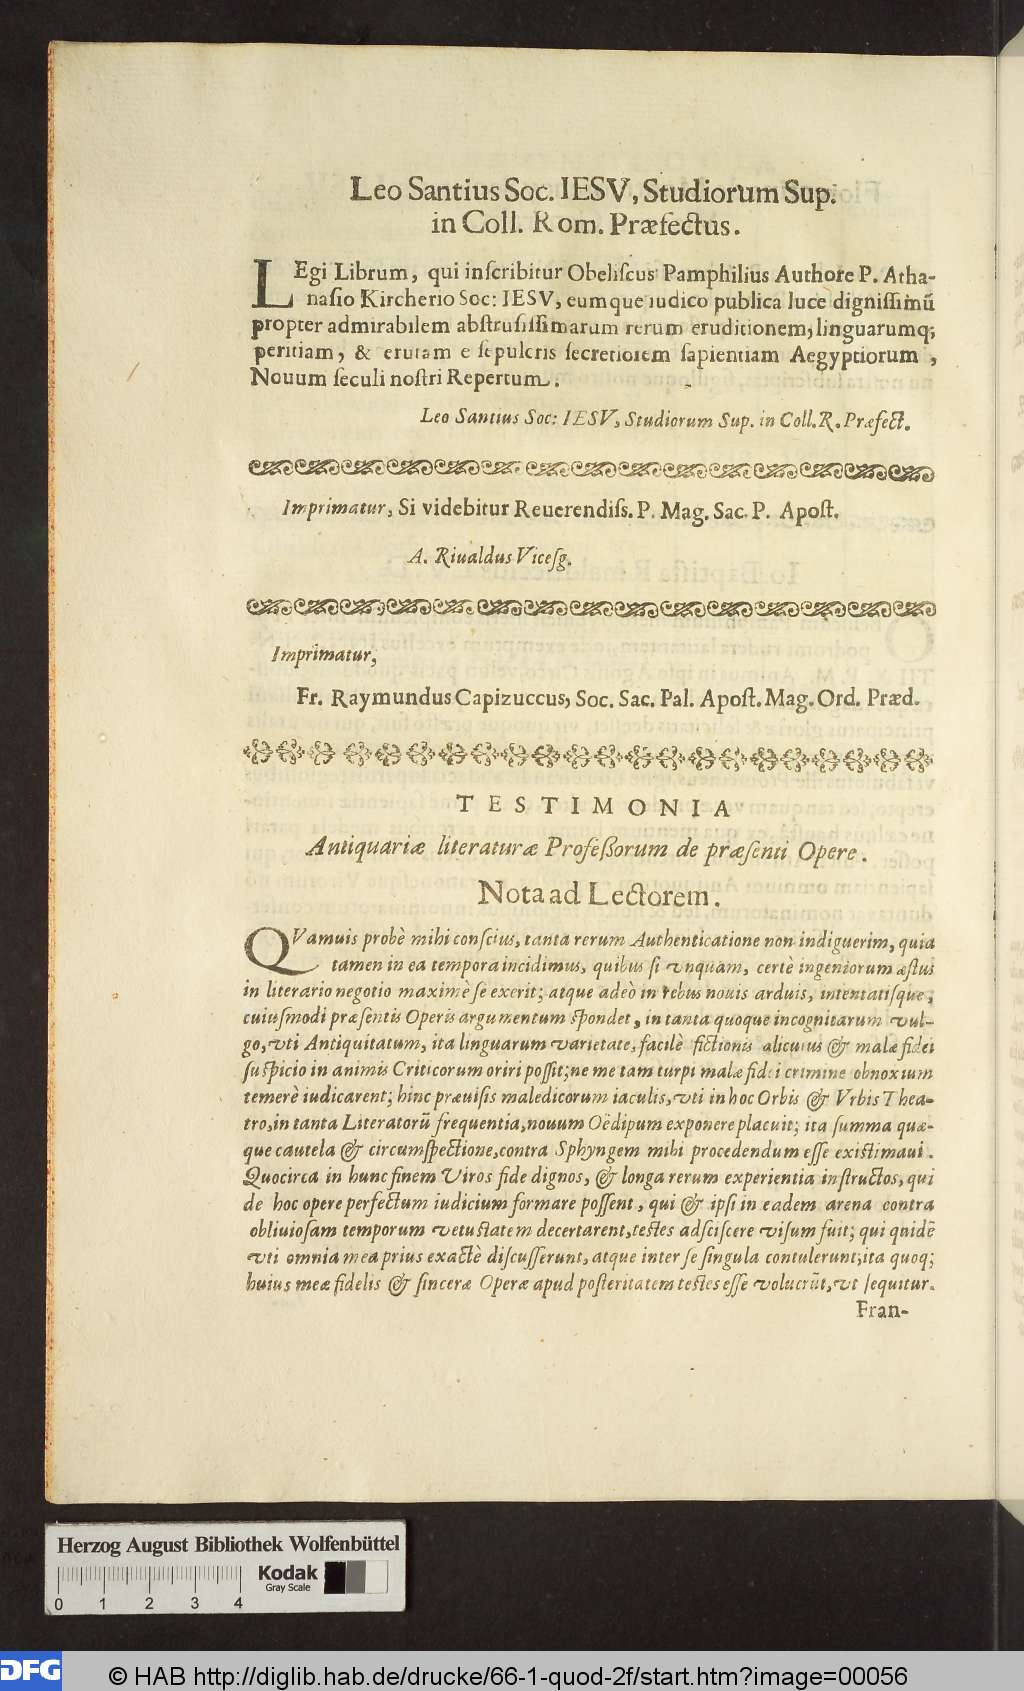 Leo Santius Soc. IESV, Studiorum Sup.
in Coll. Rom. Præfectus.
LEgi Librum, qui inſcribitur Obeliſcus Pamphilius Authore P. Atha-
naſio Kircherio Soc: IESV, eumque iudico publica luce digniſſimũ
propter admirabilem abſtruſiſſimarum rerum eruditionem, linguarumq;
peritiam, & erutam e ſepulcris ſecretiorem ſapientiam Aegyptiorum,
Nouum ſeculi noſtri Repertum.
Leo Santius Soc: IESV, Studiorum Sup. in Coll. R. Præfect.
Imprimatur, Si videbitur Reuerendiſs. P. Mag. Sac. P. Apoſt.
A. Riualdus Viceſg.
Imprimatur,
Fr. Raymundus Capizuccus, Soc. Sac. Pal. Apoſt. Mag. Ord. Præd.
TESTIMONIA
Antiquariæ literaturæ Profeßorum de præſenti Opere.
Nota ad Lectorem.
QVamuis probè mihi conſcius, tanta rerum Authenticatione non indiguerim, quia
tamen in ea tempora incidimus, quibus ſi vnquam, certè ingeniorum æſtus
in literario negotio maximè ſe exerit; atque adeò in rebus nouis arduis, intentatiſque,
cuiuſmodi præſentis Operis argumentum ſpondet, in tanta quoque incognitarum vul-
go, vti Antiquitatum, ita linguarum varietate, facilè fictionis alicuius & malæ fidei
ſuſpicio in animis Criticorum oriri poſſit; ne me tam turpi malæ fidei crimine obnoxium
temerè iudicarent; hinc præuiſis maledicorum iaculis, vti in hoc Orbis & Vrbis Thea-
tro, in tanta Literatorũ frequentia, nouum Oëdipum exponere placuit; ita ſumma quæ-
que cautela & circumſpectione, contra Sphyngem mihi procedendum eſſe exiſtimaui.
Quocirca in hunc finem Viros fide dignos, & longa rerum experientia inſtructos, qui
de hoc opere perfectum iudicium formare poſſent, qui & ipſi in eadem arena contra
obliuioſam temporum vetuſtatem decertarent, teſtes adſciſcere viſum fuit; qui quidẽ
vti omnia mea prius exactè diſcuſſerunt, atque inter ſe ſingula contulerunt; ita quoq;
huius meæ fidelis & ſinceræ Operæ apud poſteritatem teſtes eſſe voluerũt, vt ſequitur.
Fran-
Herzog August Bibliothek Wolfenbüttel
Kodak
Gray Scale
0 1 2 3 4
DFG
© HAB http://diglib.hab.de/drucke/66-1-quod-2f/start.htm?image=00056